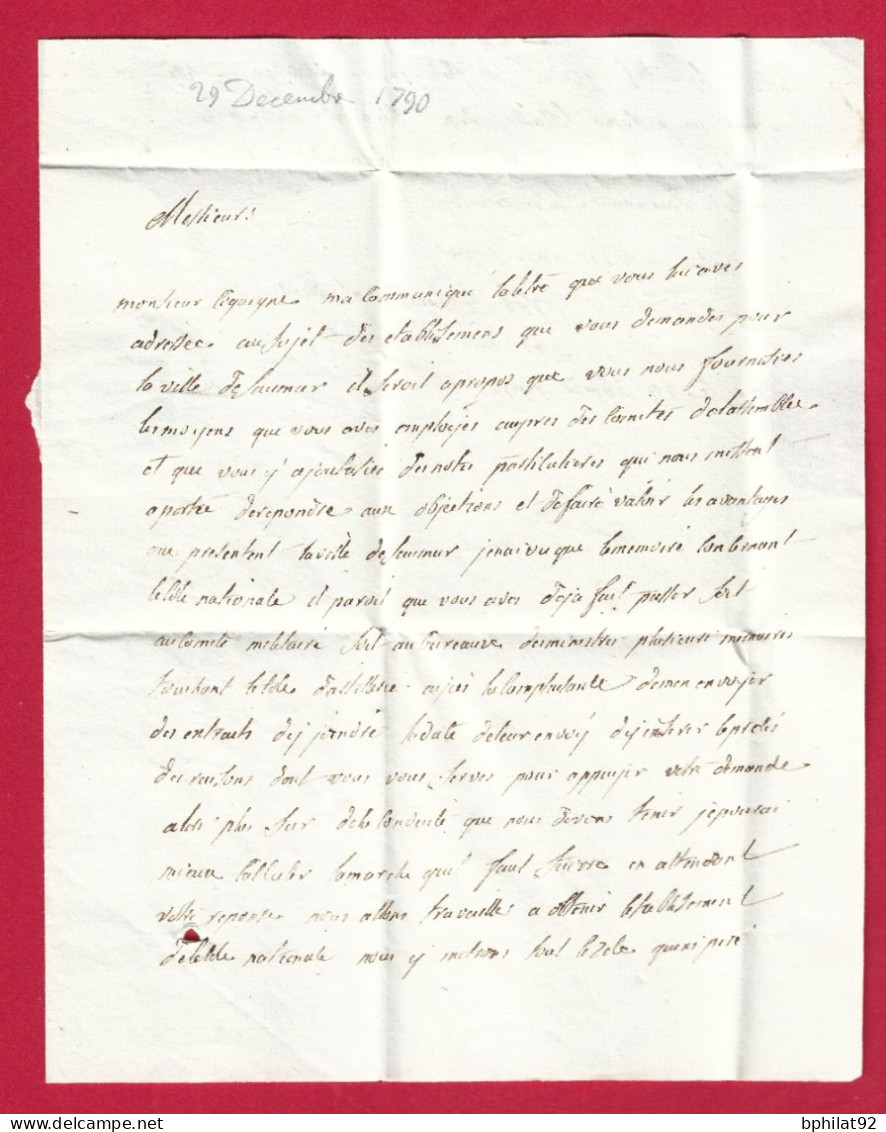 29 Decembre 1790
Messieurs
monsieur ma communiqué la letre que vous lui aves
adressee au sujet des etablissemens que vous demandes pour
la ville de saumur il seroit apropos que vous nous fournissies
les moyens que vous aves employés aupres des comités de lassemblee
et que vous y ajoutassies des notes particulieres qui nous mettent
a portée de repondre aux objections et de faire valoir les avantages
que presentent la ville de saumur je nai vu que le memoire concernant
lecole nationale il paroit que vous aves deja fait passer soit
au comité militaire soit au bureaux des ministres plusieurs memoires
touchant lecole dartillerie ayes la complaisance de men envoyer
des extraits dy joindre la date de leur envoy dy inserer le precis
des raisons dont vous vous serves pour appuyer votre demande
alors plus sur de la conduite que nous devons tenir je pourai
mieux calculer la marche quil faut suivre en attendant
votre reponse nous allons travailler a obtenir letablissement
de lecole nationale nous y mettrons tout le zele quinspire
bphilat92